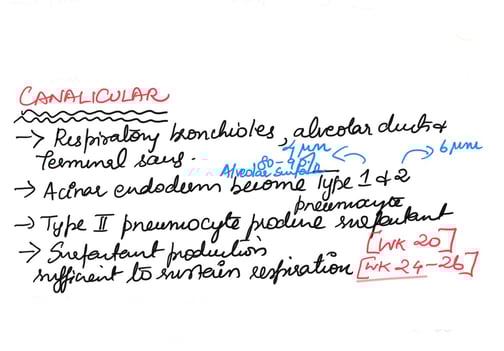 CANALICULAR
→ Respiratory bronchioles, alveolar ducts &
terminal sacs.
4 μm
6 μm
80-95%
Alveolar surface
→ Acinar endoderm become Type 1 & 2
pneumocyte
→ Type II pneumocyte produce surfactant
[WK 20]
→ Surfactant production
sufficient to sustain respiration [WK 24-26]